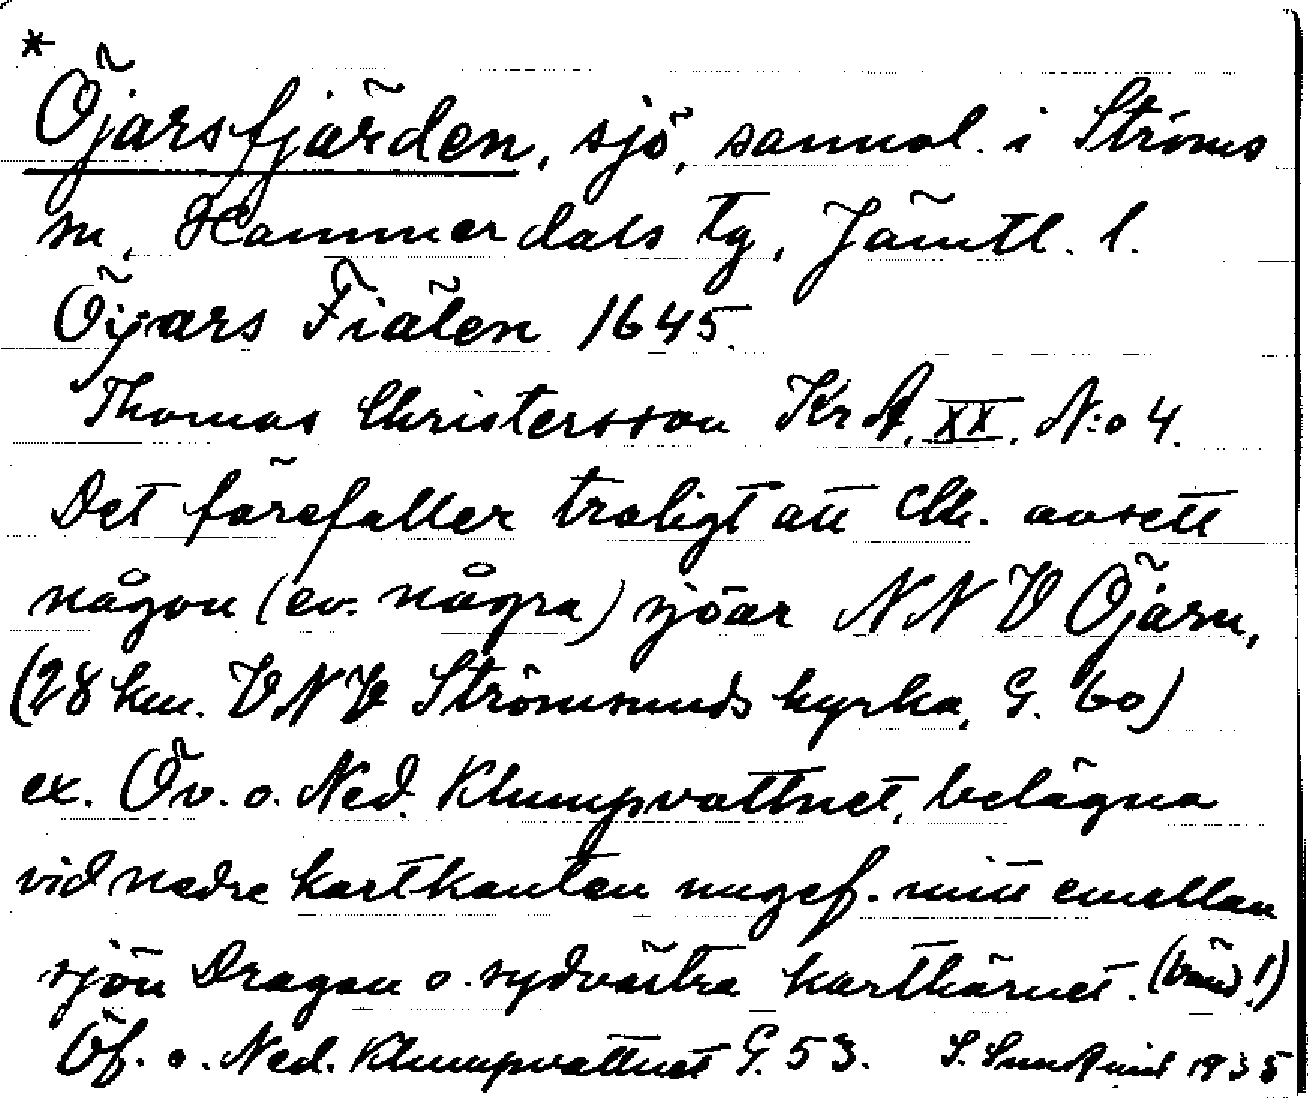 *
Öjarsfjärden, sjö, sannol. i Ströms
sn, Hammerdals tg, Jämtl. l.
Öijars Fiälen 1645.
Thomas Christersson KrA, XX, N:o 4.
Det förefaller troligt att Chr. avsett
någon (ev. några) sjöar NNV Öjarn,
(28 km. VNV Strömsunds kyrka, G. 60)
ex. Öv. o. Ned. Klumpvattnet, belägna
vid nedre kartkanten ungef. mitt emellan
sjön Dragan o. sydvästra karthörnet. (vänd!)
Öf. o. Ned. Klumpvattnet G. 53. S. Sundquist 1935